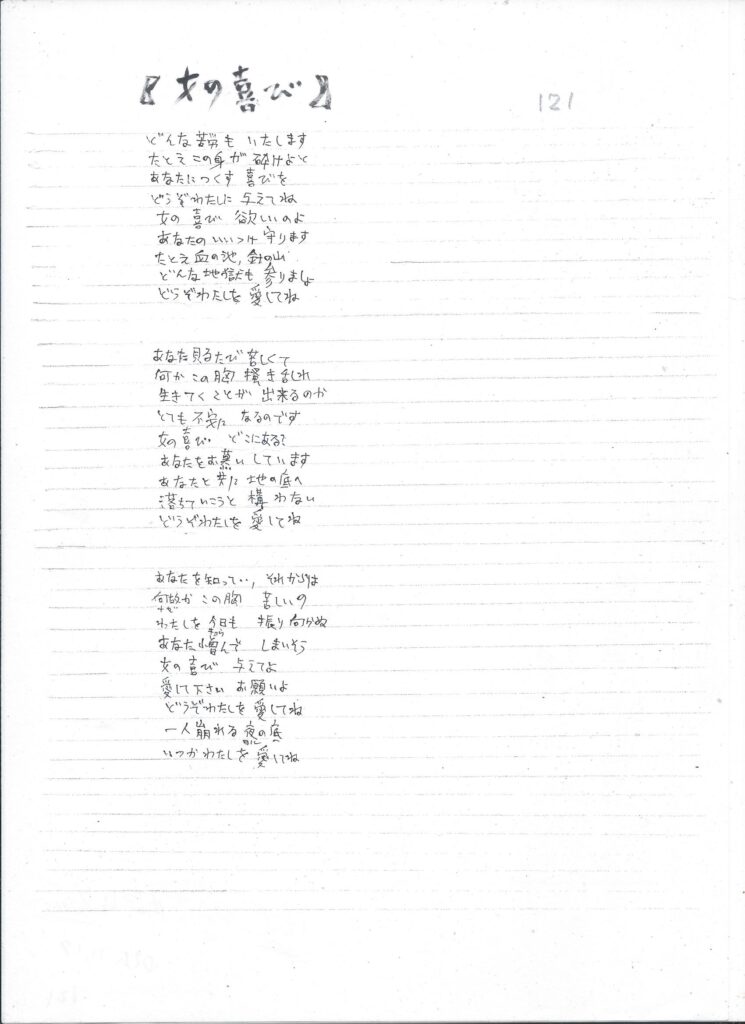 【女の喜び】
121
どんな苦労も いたします
たとえこの身が 砕けよと
あなたにつくす 喜びを
どうぞわたしに 与えてね
女の 喜び 欲しいのよ
あなたの いいつけ 守ります
たとえ血の池, 針の山
どんな地獄も 参りましょ
どうぞわたしを 愛してね
あなた見るたび 苦しくて
何か この胸 掻き乱れ
生きてくことが 出来るのか
とても 不安に なるのです
女の喜び・・ どこにある?
あなたをお慕い しています
あなたと共に 地の底へ
落ちていこうと 構わない
どうぞわたしを 愛してね
あなたを知って・・, それからは
何故か この胸 苦しいの
なぜ
わたしを 今日も 振り向かぬ
あなた憎んで しまいそう
女の 喜び 与えてよ
愛して下さい お願いよ
どうぞわたしを 愛してね
一人崩れる 夜の底
いつかわたしを 愛してね